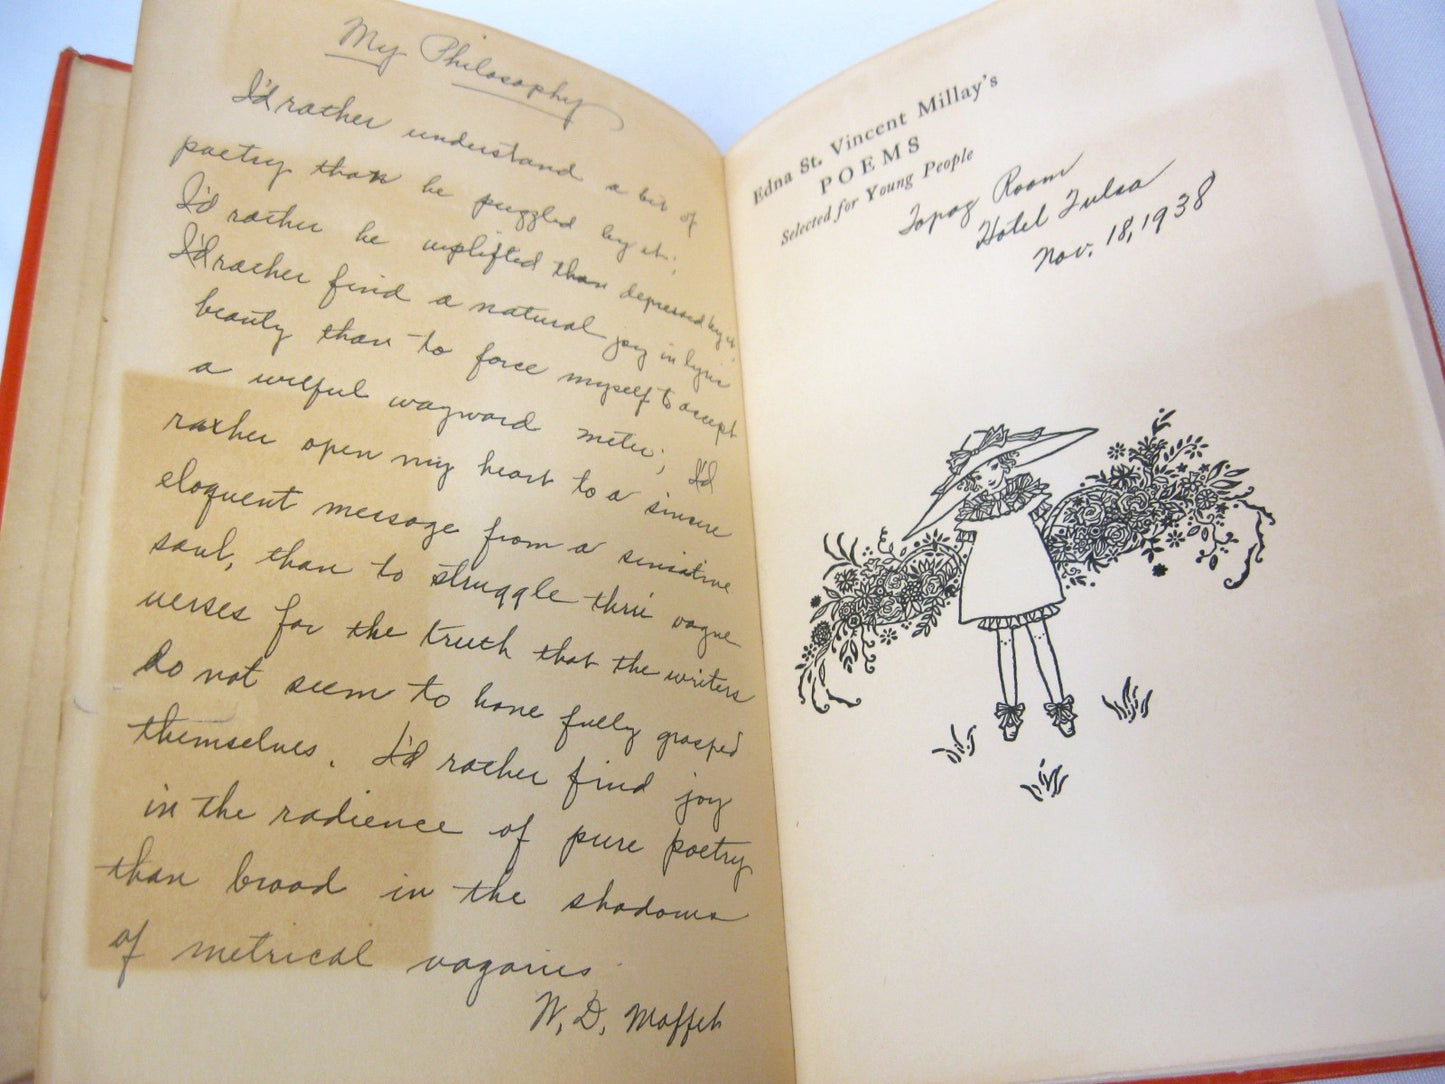 My Philosophy
I'd rather understand a bit of
poetry than be puzzled by it;
I'd rather be uplifted than depressed by it.
I'd rather find a natural joy in lyric
beauty than to force myself to accept
a wilful wayward meter; I'd
rather open my heart to a sincere
eloquent message from a sensitive
soul, than to struggle thru vague
verses for the truth that the writers
do not seem to have fully grasped
themselves. I'd rather find joy
in the radience of pure poetry
than brood in the shadows
of metrical vagaries.
W. D. Moffet
Edna St. Vincent Millay's
POEMS
Selected for Young People
Topaz Room
Hotel Tulsa
Nov. 18, 1938